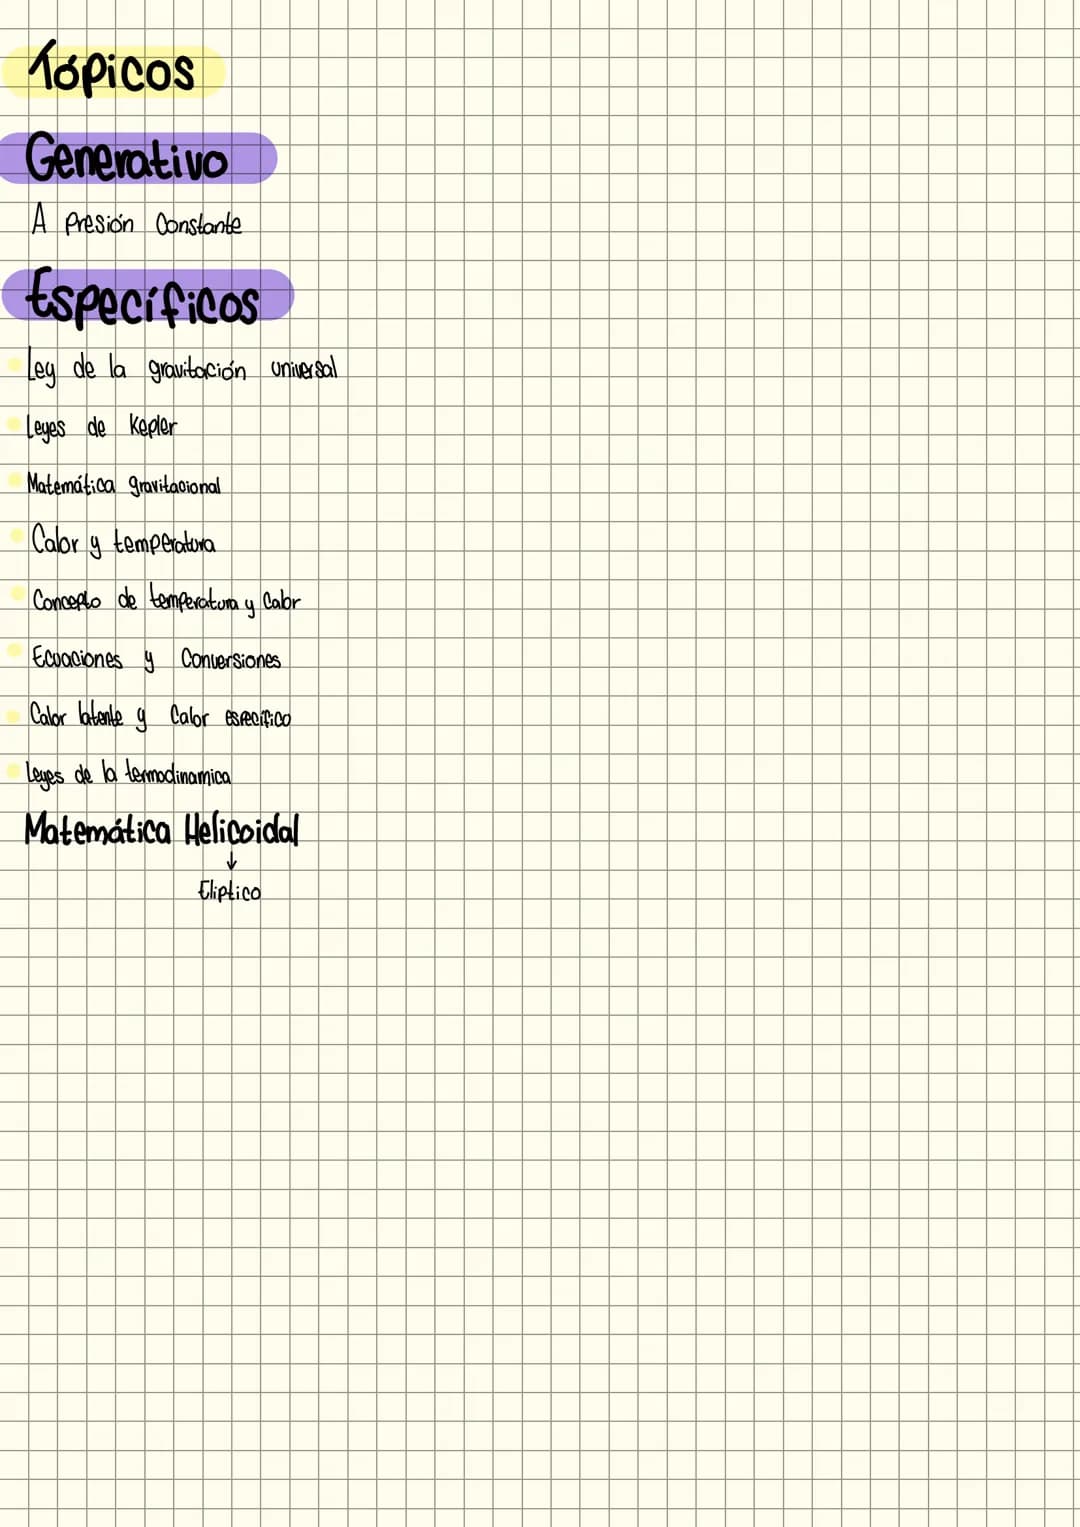 Tópicos
Generativo
A Presión Constante
Específicos
Ley de la gravitación universal
Leyes de Kepler
Matemática gravitacional
Calor y temperatura
Concepto de temperatura y Calor
Ecuaciones y Conversiones
Calor latente y Calor específico
Leyes de la termodinamica
Matemática Helicoidal
↓
Eliptico